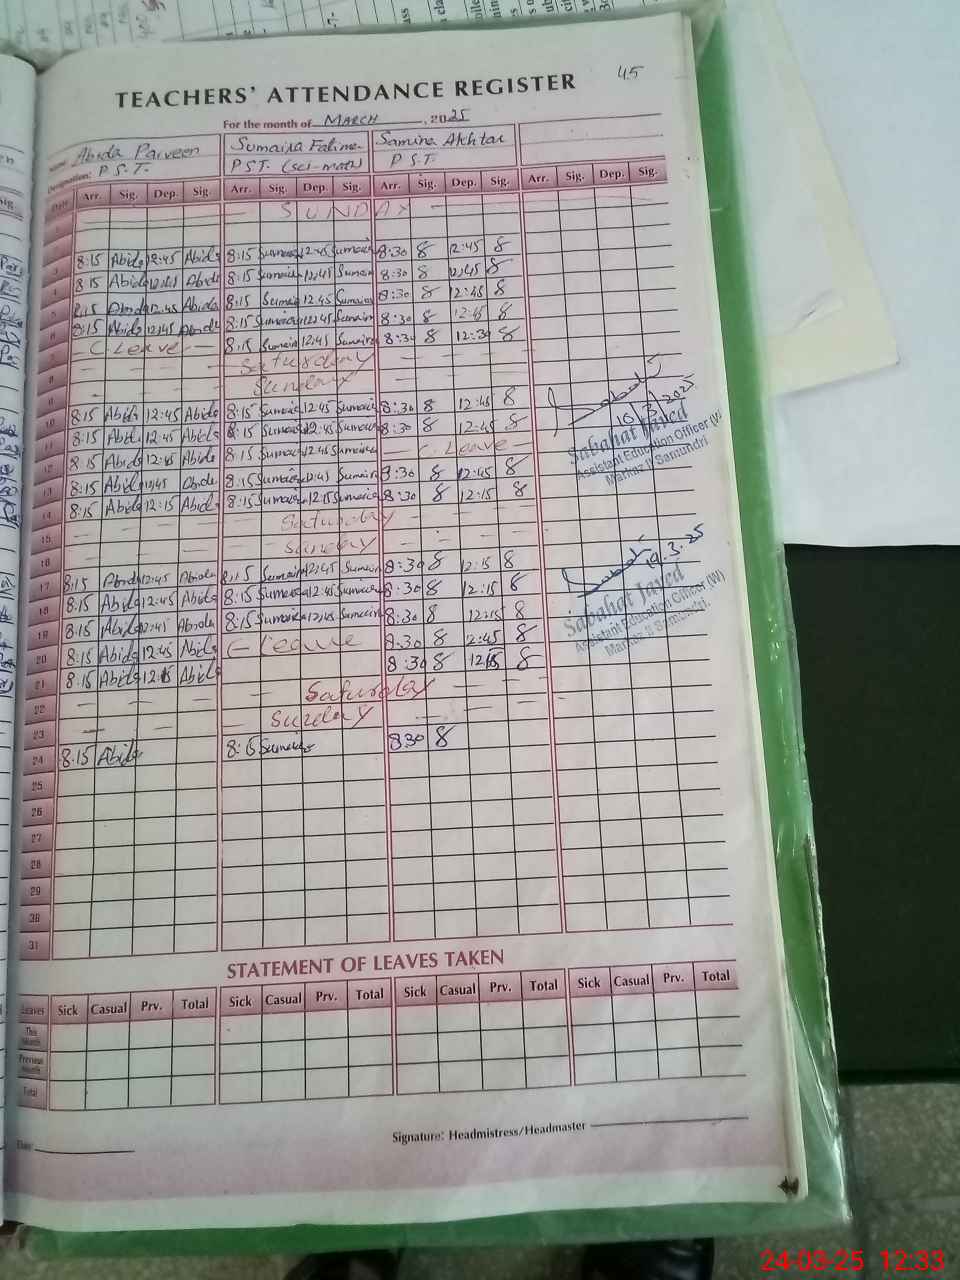 45
TEACHERS' ATTENDANCE REGISTER
For the month of MARCH, 2025
Name: Abida Parveen Sumaira Fatima Samina Akhtar
Designation: P.S.T. PST. (sci-math) P.S.T.
Date Arr. Sig. Dep. Sig Arr. Sig. Dep. Sig. Arr. Sig. Dep. Sig. Arr. Sig. Dep. Sig.
1
SUNDAY
3 8:15 Abida 12:45 Abida 8:15 Sumaira 12:45 Sumaira 8:30 8 12:45 8
4 8:15 Abida 12:45 Abida 8:15 Sumaira 12:45 Sumaira 8:30 8 12:45 8
5 8:15 Abida 12:45 Abida 8:15 Sumaira 12:45 Sumaira 8:30 8 12:45 8
6 8:15 Abida 12:45 Abida 8:15 Sumaira 12:45 Sumaira 8:30 8 12:45 8
7 C. Leave 8:15 Sumaira 12:45 Sumaira 8:30 8 12:30 8
8 Saturday
9 Sunday
10 8:15 Abida 12:45 Abida 8:15 Sumaira 12:45 Sumaira 8:30 8 12:45 8
11 8:15 Abida 12:45 Abida 8:15 Sumaira 12:45 Sumaira 8:30 8 12:45 8
12 8:15 Abida 12:45 Abida 8:15 Sumaira 12:45 Sumaira C. Leave
13 8:15 Abida 12:45 Abida 8:15 Sumaira 12:45 Sumaira 8:30 8 12:45 8
14 8:15 Abida 12:15 Abida 8:15 Sumaira 12:15 Sumaira 8:30 8 12:15 8
15 Saturday
16 Sunday
17 8:15 Abida 12:45 Abida 8:15 Sumaira 12:45 Sumaira 8:30 8 12:15 8
18 8:15 Abida 12:45 Abida 8:15 Sumaira 12:45 Sumaira 8:30 8 12:15 8
19 8:15 Abida 12:45 Abida 8:15 Sumaira 12:45 Sumaira 8:30 8 12:15 8
20 8:15 Abida 12:45 Abida C Leave 8:30 8 12:45 8
21 8:15 Abida 12:15 Abida 8:30 8 12:15 8
22 Saturday
23 Sunday
24 8:15 Abida 8:15 Sumaira 8:30 8
25
26
27
28
29
30
31
10/3/2025
Sabahat Javed
Assistant Education Officer (W)
Markaz II Samundri
19.3.25
Sabahat Javed
Assistant Education Officer (W)
Markaz II Samundri.
STATEMENT OF LEAVES TAKEN
Leaves Sick Casual Prv. Total Sick Casual Prv. Total Sick Casual Prv. Total Sick Casual Prv. Total
This Month
Previous month
Total
Date:
Signature: Headmistress/Headmaster
24-03-25 12:33